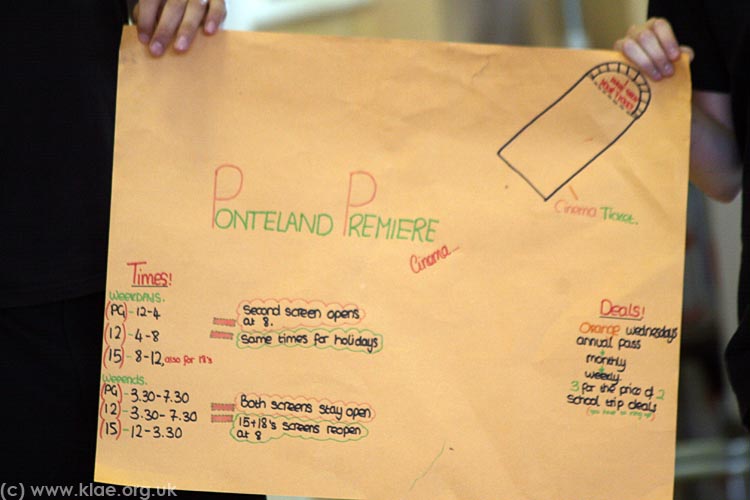 PONTELAND PREMIERE
Cinema...
Cinema Ticket.
Times!
WEEKDAYS.
(PG) - 12-4
(12) - 4-8
(15) - 8-12, also for 18's
Second screen opens
at 8.
Same times for holidays
Weeends.
(PG) - 3.30-7.30
(12) - 3.30-7.30
(15) - 12-3.30
Both screens stay open
15+18's screens reopen
at 8
Deals!
Orange wednesdays
annual pass
monthly
weekly.
3 for the price of 2
School trip deals
(you have to ring up)
(c) www.klae.org.uk